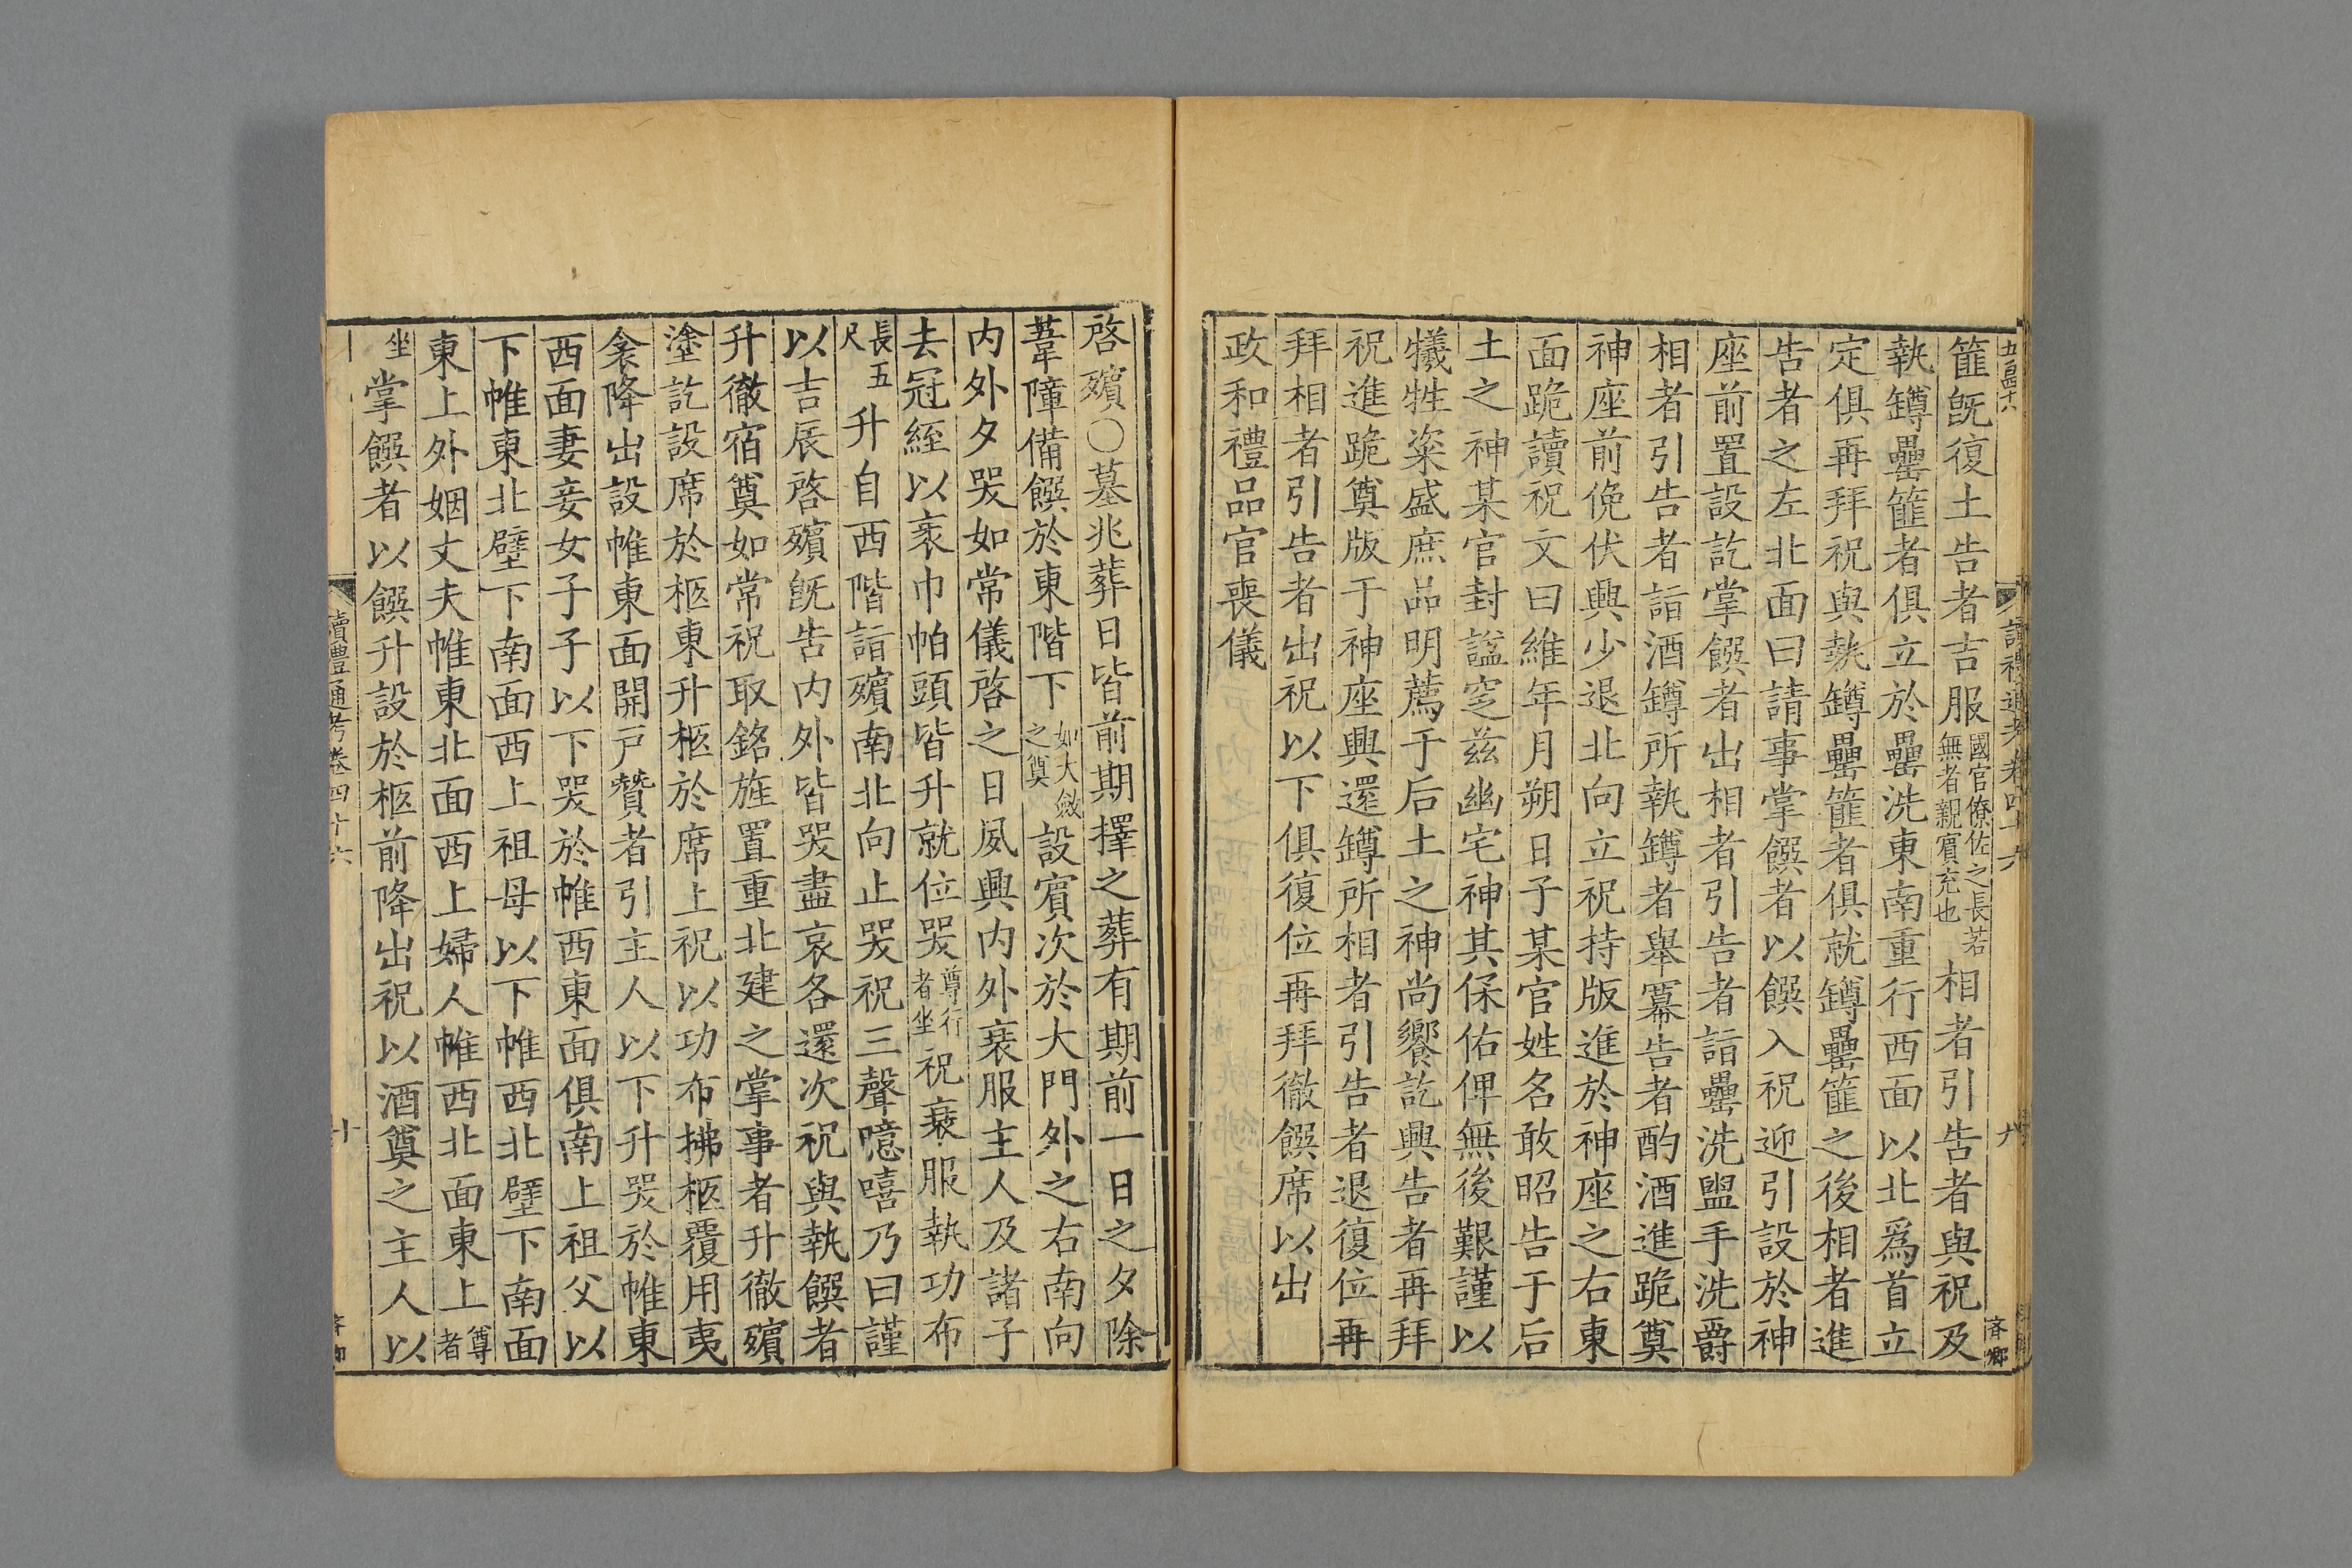 五百四十六
讀禮通考卷四十六
九
斉卿
篚旣復土告者吉服國官僚佐之長若無者親賓充也相者引告者與祝及
執罇罍篚者俱立於罍洗東南重行西面以北爲首立
定俱再拜祝與執罇罍篚者俱就罇罍篚之後相者進
告者之左北面曰請事掌饌者以饌入祝迎引設於神
座前置設訖掌饌者出相者引告者詣罍洗盥手洗爵
相者引告者詣酒罇所執罇者舉冪告者酌酒進跪奠
神座前俛伏興少退北向立祝持版進於神座之右東
面跪讀祝文曰維年月朔日子某官姓名敢昭告于后
土之神某官封諡窆茲幽宅神其保佑俾無後艱謹以
犧牲粢盛庶品明薦于后土之神尚饗訖興告者再拜
祝進跪奠版于神座興還罇所相者引告者退復位再
拜相者引告者出祝以下俱復位再拜徹饌席以出
政和禮品官喪儀
啓殯○墓兆葬日皆前期擇之葬有期前一日之夕除
葦障備饌於東階下如大斂之奠設賓次於大門外之右南向
內外夕哭如常儀啓之日夙興內外衰服主人及諸子
去冠絰以衺巾帕頭皆升就位哭尊行者坐祝衰服執功布
長五尺升自西階詣殯南北向止哭祝三聲噫嘻乃曰謹
以吉辰啓殯旣告內外皆哭盡哀各還次祝與執饌者
升徹宿奠如常祝取銘旌置重北建之掌事者升徹殯
塗訖設席於柩東升柩於席上祝以功布拂柩覆用夷
衾降出設帷東面開戶贊者引主人以下升哭於帷東
西面妻妾女子子以下哭於帷西東面俱南上祖父以
下帷東北壁下南面西上祖母以下帷西北壁下南面
東上外姻丈夫帷東北面西上婦人帷西北面東上尊者
坐掌饌者以饌升設於柩前降出祝以酒奠之主人以
讀禮通考卷四十六
十